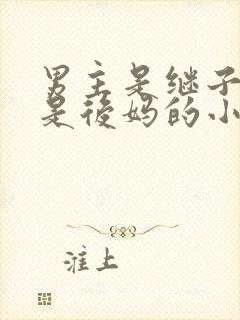 男主是继子
是後妈的小
淮上